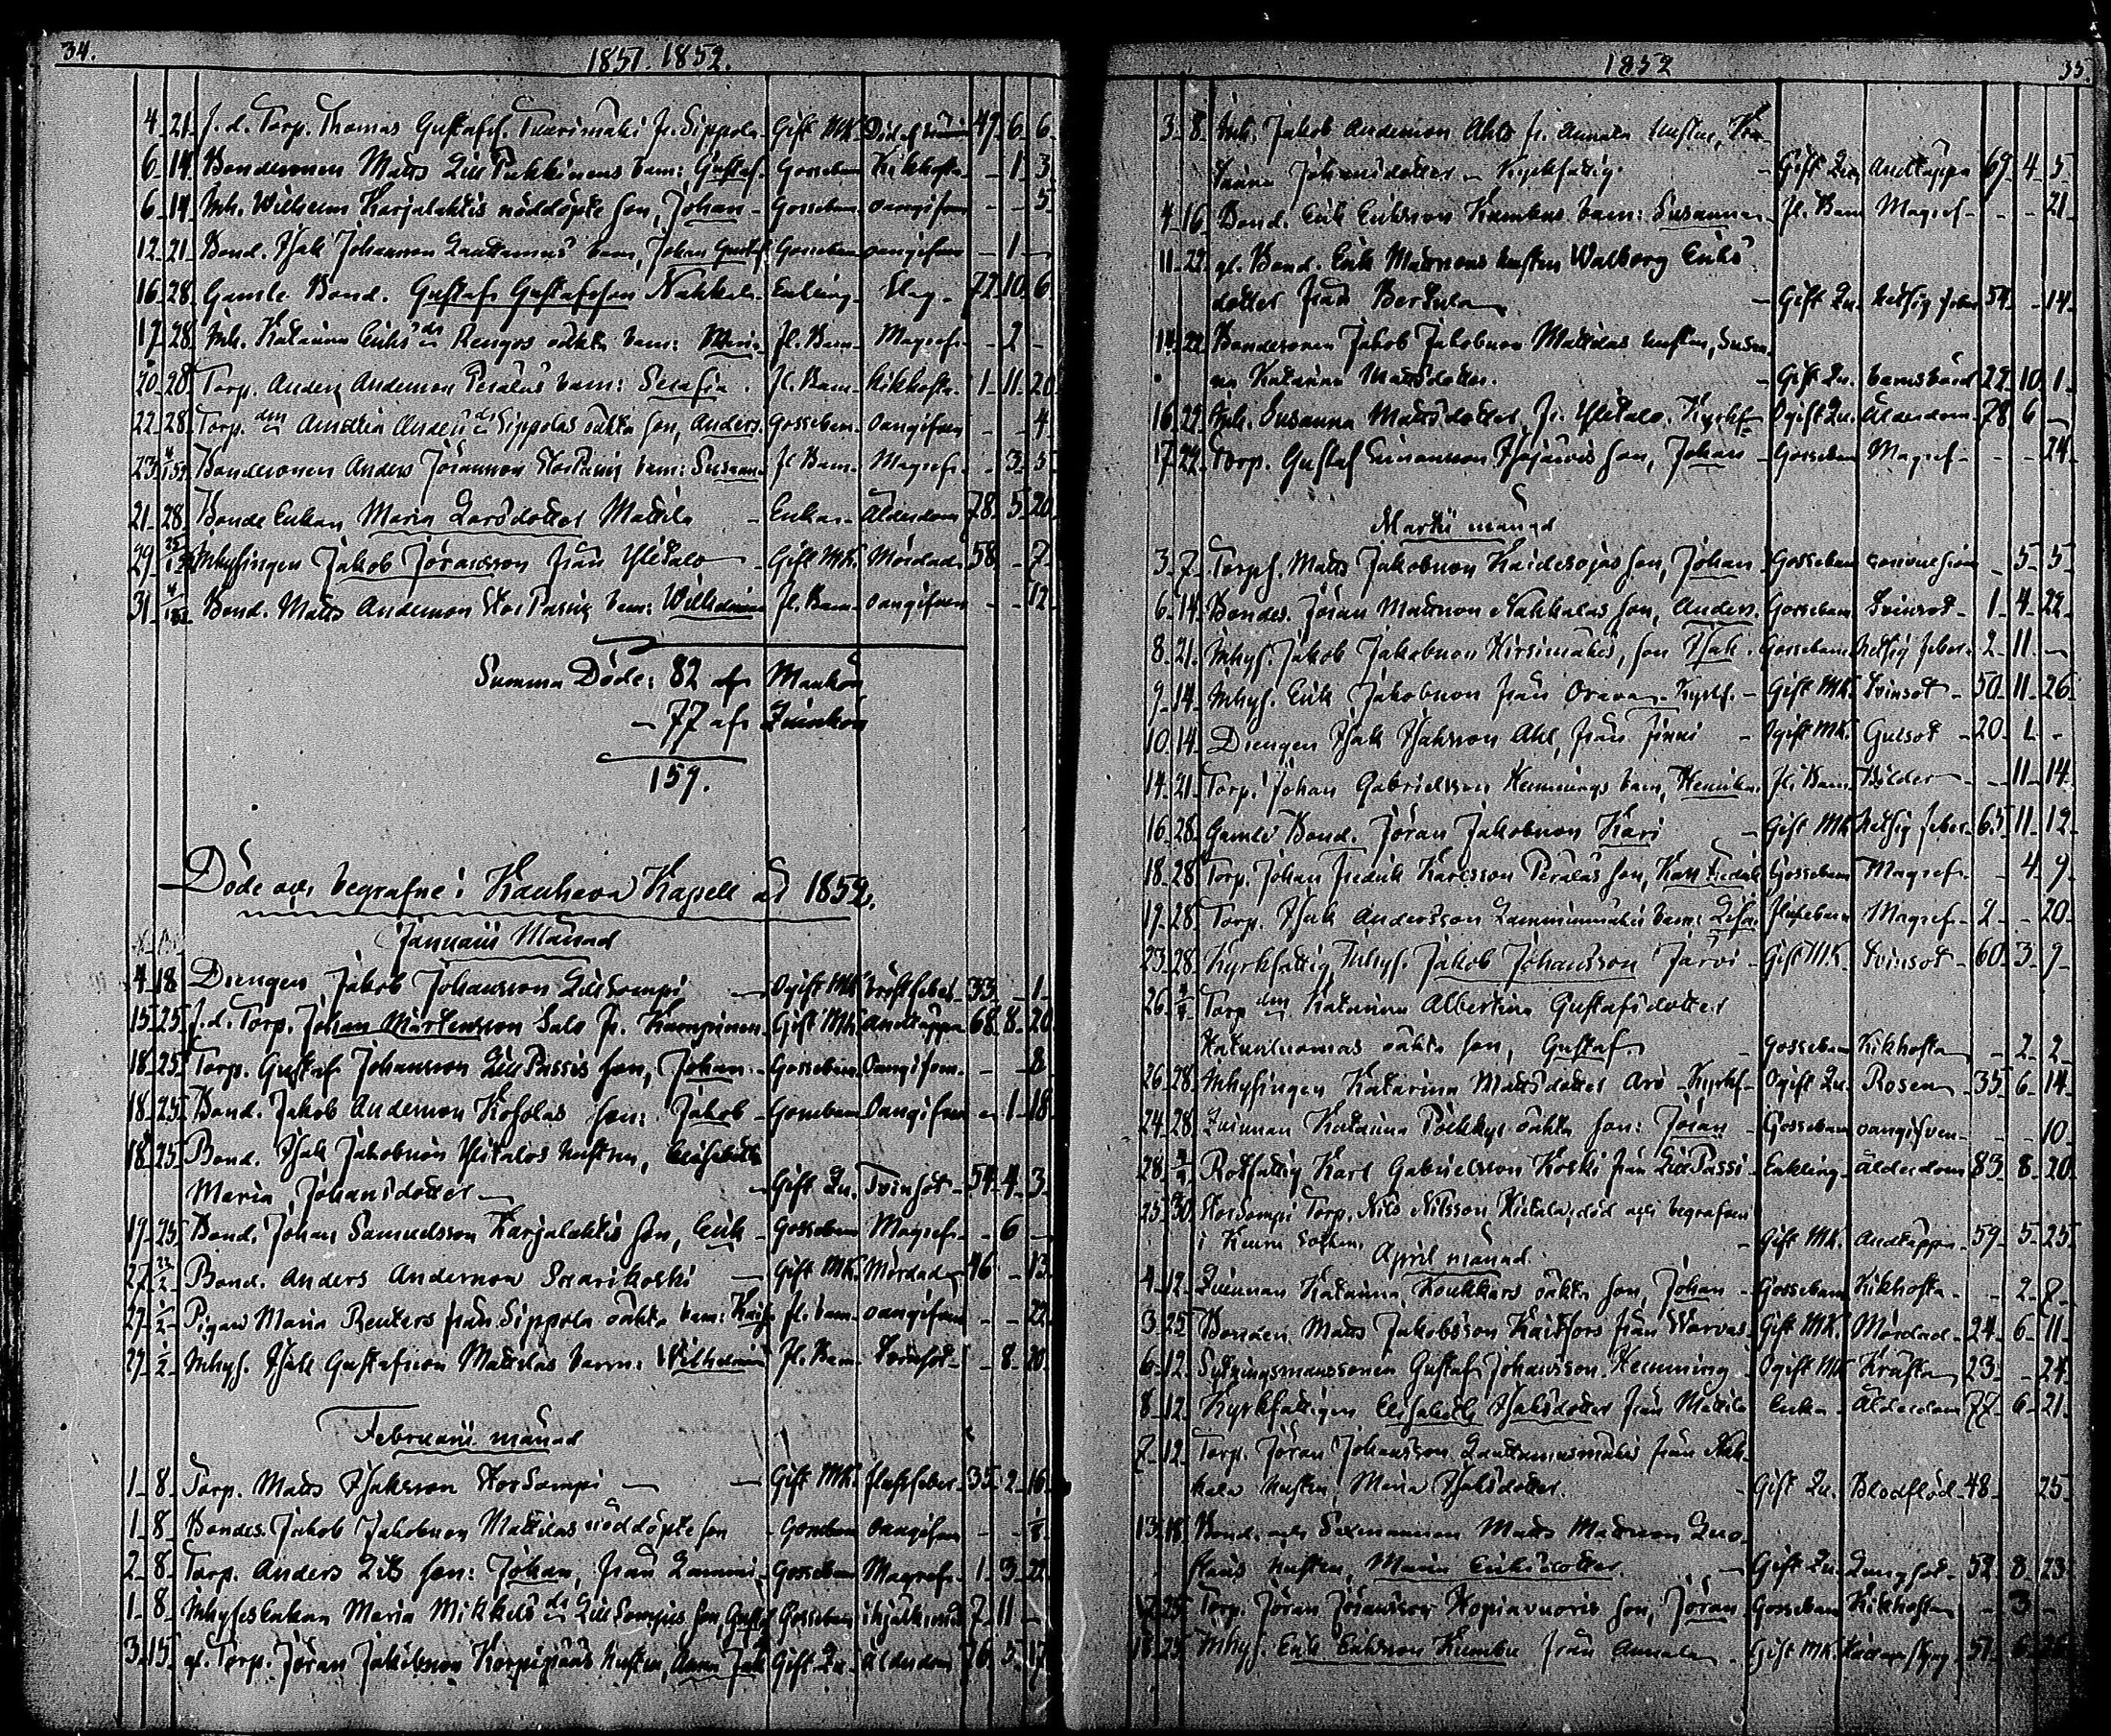 34.
1851. 1852.
4 21 f. d. Torp. Thomas Gustafsf. Tuurimäki fr. Sippola Gift MK. Död af 47 6 6
6 14 Bondesonen Matts Lill Pukkinens barn: Gustaf Gossebarn Kikhosta - 1 3
6 14 Inh. Wilhelm Karjalahtis nöddöpte son, Johan Gossebarn oangifven - - 5
12 21 Bond. Isak Johansson barn, Johan Gustaf Gossebarn oangifven - 1 -
16 28 Gamle Bond. Gustaf Gustafsson Nahkala Enkling Slag 72 10 6
17 28 Inh. Katarina Eriks dr Rengos oäkta barn: Maria Fl. Barn Magref - 2 -
20 28 Torp. Anders Andersson Peralas barn: Serafia Fl. Barn Kikhosta 1 11 20
22 28 Torp. dm Anders dr Sippolas oäkta son, Anders Gossebarn Oangifven - - 4
23 4/1 52 Bondesonen Anders Jöransson Stor Passis barn: Susan Fl Barn Magref - 3 5
21 28 Bonde Enkan Maria Larsdotter Mattila Enka Ålderdom 78 5 20
29 25/1 Inhysingen Jakob Jöransson från Ylitalo Gift MK. Mördad 58 - 7
31 4/1 52 Bond. Matts Andersson Stor Passis barn: Wilhelmina Fl. Barn oangifven - - 12
Summa Döde: 82 af Mankön
- 77 af Qvinkön
159.
Döde och begrafne i Kauhava Kapell år 1852.
Januarii Månad
4 18 Drengen Jakob Johansson Lill Sompi Ogift MK bröstfeber 33 - 1
15 25 f. d. Torp. Johan Mårtensson Salo fr. Kamppinen Gift MK Andtäppa 68 8 20
18 25 Torp. Gustaf Johansson Lill Passis son, Johan Gossebarn Oangifven - - 8
18 25 Bond. Jakob Andersson Kosolas son: Jakob Gossebarn Oangifven - 1 18
18 25 Bond. Isak Jakobsson Ylitalos hustru, Elisabeth
Maria Johansdotter Gift Qu. Tvinsot 54 4 3
19 25 Bond. Johan Samuelsson Karjalahtis son, Erik Gossebarn Magref - 6 -
22 22/2 Bond. Anders Andersson Saarikoski Gift MK. Mördad 46 - 13
27 1/2 Pigan Maria Renters från Sippola oäkta barn: Kaisa Fl. barn oangifven - - 22
27 1/2 Inhys. Isak Gustafsson Mattilas barn: Wilhelmina Fl. Barn Tvinsot - 8 20
Februarii månad
1 8 Torp. Matts Isaksson Stor Sompi Gift MK. flussfeber 35 2 16
1 8 Bondes. Jakob Jakobsson Mattilas nöddöpte son Gossebarn oangifven - -
2 8 Torp. Anders Lills son: Johan, från Lammi Gossebarn Magref 1 3 22
1 8 Inhyses Enkan Maria Mikkels dr Lill Sompis son, Gustaf Gossebarn 7 11 -
3 15 gl. Torp. Jöran Jakobsson hustru, Anna Jak Gift Qu. Ålderdom 76 5 17
1852
35.
3 8 Inh. Jakob Andersson Ahlo fr. Annala hustru,
Johansdotter - Kyrkfattig Gift Qu. Andtäppa 69 4 5
4 16 Bond. Erik Eriksson Kumbus barn: Susanna Fl. Barn Magref - - 21
11 22 gl. Bond. Erik Mattssons hustru Walborg Eriks
dotter från Bertula Gift Qu. hetsig feber 54 - 14
14 22 Bondesonen Jakob Jakobsson Mattilas hustru, Susan
na Katarina Mattsdotter. Gift Qu. barnsbörd 22 10 1
16 22 Inh. Susanna Mattsdotter, fr. Ylitalo. Kyrkf. Ogift Qu. Ålderdom 78 6 -
17 22 Torp. Gustaf Simonsson Isojärvis son, Johan Gossebarn Magref - - 24
Martii månad
3 7 Torps. Matts Jakobsson Kaidesojas son, Johan Gossebarn convulsion - 5 5
6 14 Bondes. Jöran Mattsson Nahkalas son, Anders Gossebarn Tvinsot 1 4 22
8 21 Inhys. Jakob Jakobsson Hirsimäkis, son Isak Gossebarn hetsig feber 2 11 -
9 14 Inhys. Erik Jakobsson från Orava Kyrkf. Gift MK. Tvinsot 50 11 26
10 14 Drengen Isak Isaksson Ahl, från Finni Ogift MK. Gulsot 20 1 -
14 21 Torp. Johan Gabrielsson Hemmings barn, Henrika Fl. Barn Bölder - 11 14
16 28 Gamle Bond. Jöran Jakobsson Kari Gift MK hetsig feber 65 11 12
18 28 Torp. Johan Fredrik Karlsson Peralas son, Karl Fredrik Gossebarn Magref - 4 9
19 28 Torp. Isak Andersson Lamminmäkis barn: Lisa Flickebarn Magref 2 - 20
23 28 Kyrkfattig Inhys. Jakob Johansson Järvi Gift MK. Tvinsot 60 3 9
26 4/4 Torp dm Katarina Albertina Gustafsdotter
oäkta son, Gustaf Gossebarn Kikhosta - 2 2
26 28 Inhysingen Katarina Mattsdotter Aro - Kyrkf. Ogift Qu. Rosen 35 6 14
24 28 Qvinnan Katarina oäkta son: Jöran Gossebarn oangifven - - 10
28 4/4 Rotfattig Karl Gabrielsson Koski från Lill Passi Enkling ålderdom 83 8 20
25 30 Stor Sompi Torp. Nils Nilsson Hietala, död och begrafven
i Socken Gift MK. Andtäppa 59 5 25
April månad
4 12 Qvinnan Katarina Koukkars oäkta son, Johan Gossebarn Kikhosta - 2 8
3 25 Bonden Matts Jakobsson Kaitfors från Warvas Gift MK. Mördad 24 6 11
6 12 Sytningsmanssonen Gustaf Johansson Hemming Ogift MK Kräfta 23 - 24
8 12 Kyrkfattigen Elisabeth Isaksdotter från Mattila Enka Ålderdom 77 6 21
7 12 Torp. Jöran Johansson från Nah-
kala hustru, Maria Isaksdotter. Gift Qu. Blodflöd 48 - 25
13 18 Bond. och Sexmannen Matts Mattsson Luo-
hustru, Maria Eriksdotter. Gift Qu. Lungsot 52 8 23
17 25 Torp. Jöran Jöransson son, Jöran Gossebarn Kikhosta - 3 -
18 25 Inhys. Erik Eriksson Kumbu från Annala. Gift MK. 51 6